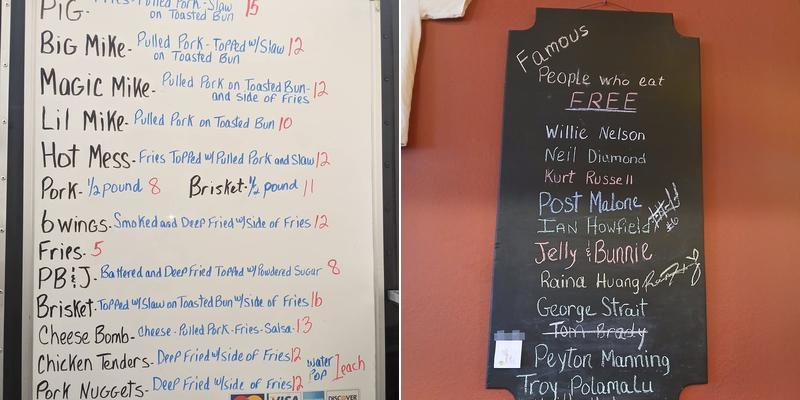 PIG- Fries-Pulled Pork-Slaw 15
on Toasted Bun
Big Mike- Pulled Pork-Topped w/Slaw 12
on Toasted Bun
Magic Mike- Pulled Pork on Toasted Bun- 12
and side of Fries
Lil Mike- Pulled Pork on Toasted Bun 10
Hot Mess- Fries Topped w/Pulled Pork and Slaw 12
Pork- 1/2 pound 8 Brisket-1/2 pound 11
6 wings-Smoked and Deep Fried w/Side of Fries 12
Fries- 5
PB&J- Battered and Deep Fried Topped w/Powdered Sugar 8
Brisket-Topped w/Slaw on Toasted Bun w/side of Fries 16
Cheese Bomb-Cheese-Pulled Pork-Fries-Salsa-13
Chicken Tenders- Deep Fried w/side of Fries 12
Water
Pop 1 each
Pork Nuggets- Deep Fried w/side of Fries 12
VISA
DISCOVER
Famous
People who eat
FREE
Willie Nelson
Neil Diamond
Kurt Russell
Post Malone
Ian Howfield
Jelly & Bunnie
Raina Huang
George Strait
Tom Brady
Peyton Manning
Troy Polamalu